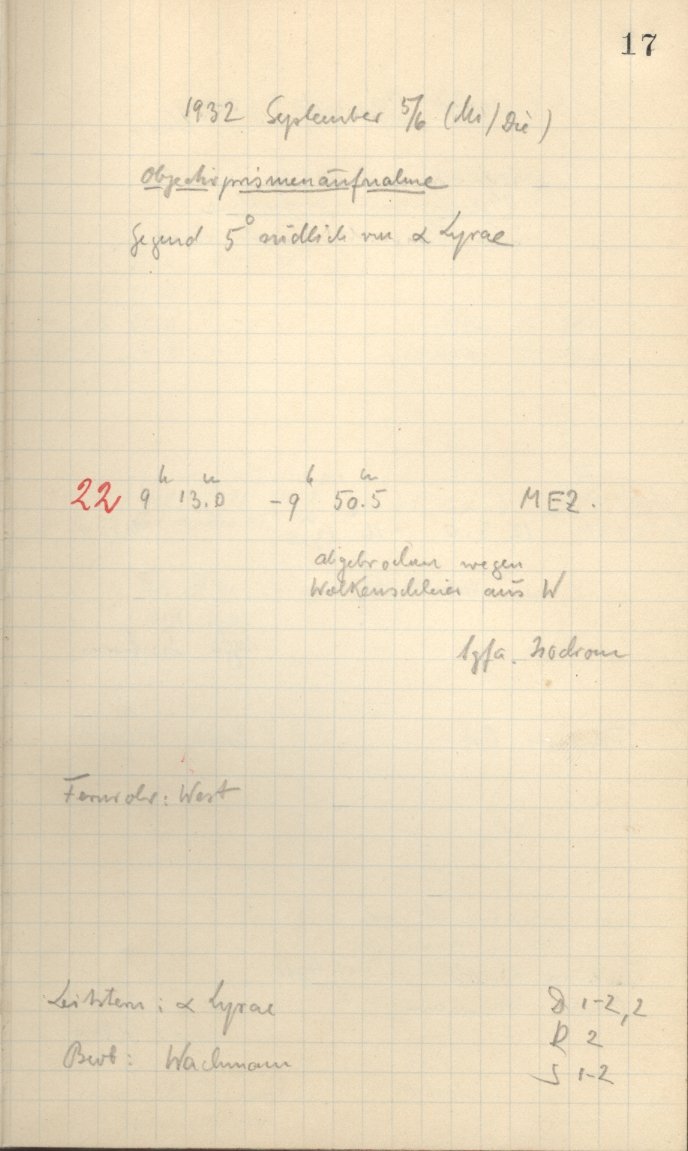 17
1932 September 5/6 (Mo/Die)
Objektivprismenaufnahme
Gegend 5° südlich von α Lyrae
22 9h 13.0m - 9h 50.5m MEZ.
abgebrochen wegen
Wolkenschleier aus W
Agfa. Isochrom
Fernrohr: West
Leitstern: α Lyrae
D 1-2, 2
R 2
Beob: Wachmann
S 1-2